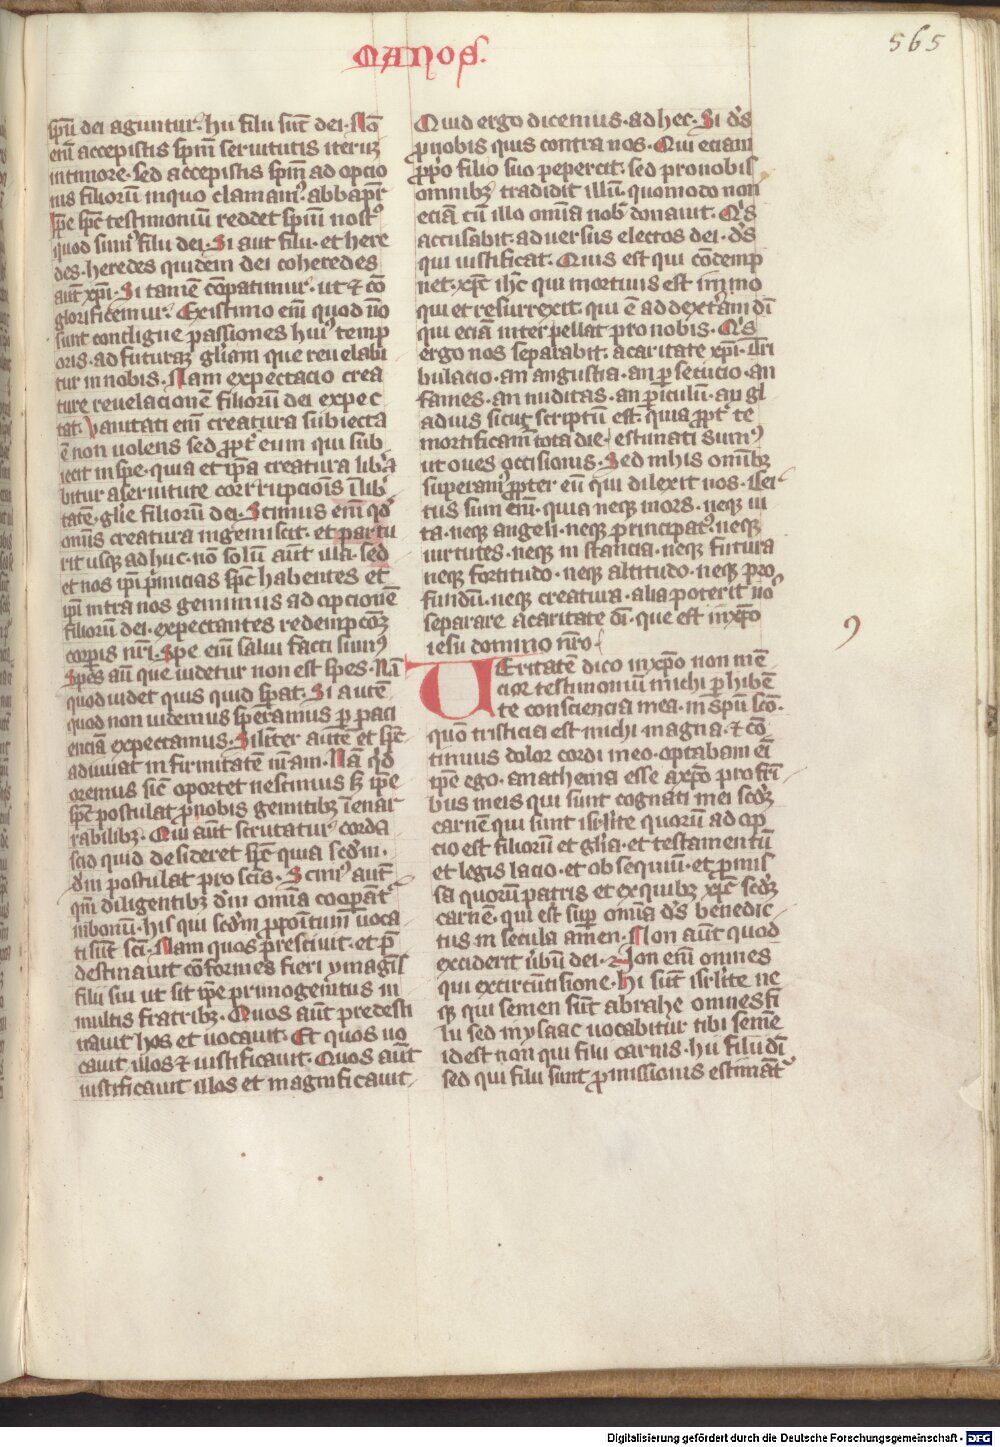 MANOS.
565
spū dei aguntur. hii filii sūt dei. Nō
enī accepistis spm̄ seruitutis iterū
in timore. sed accepistis spm̄ ad opcio
nis filiorū in quo clamam⁹. abba pr̄
Ipe spc̄ testimoniū reddet spūi nostº
quod sum⁹ filii dei. Si aut filii. et here
des. heredes quidem dei coheredes
aūt xpī. Si tamē cōpatimur. ut ⁊ cō
glorificemur. Existimo enī quod nō
sunt condigne passiones hui⁹ temp
oris. ad futurā gl̄iam que reuelabi
tur in nobis. Nam expectacio crea
ture reuelacionē filiorū dei expec
tat. Vanitati enī creatura subiecta
ē non uolens sed ppt̄ eum qui sub
iecit in spe. quia et ip̄a creatura lib̄a
bitur a seruitute corrrupcioīs ī lib̄
tatē. glīe filiorū dei. Scimus enī qd̄
omīs creatura ingemiscit. et partu
rit usqꝫ ad huc. nō solū aūt illa. sed
et nos ip̄i p̄micias spc̄ habentes et
ip̄i intra nos gemimus ad opcionē
filiorū dei. expectantes redempcōꝫ
corpis nr̄i. Spe enī salui facti sum⁹
Spes aū que uidetur non est spes. Nā
quod uidet quis quid sperat. Si autē
quod non uidemus speramus p paci
enciā expectamus. Silit̄er autē et spc̄
adiuuat infirmitatē nr̄am. Nā qd
oremus sicē oportet nescimus sꝫ ipe
spc̄ postulat p nobis gemitibꝫ īenar
rabilibꝫ. Qui aūt scrutatur corda
scid quid desideret spc̄ quia scd̄m.
dm̄ postulat pro scīs. Scim⁹ aūt
qm̄ diligentibꝫ dm̄ omīa coopant᷑
in bonū. his qui scd̄m ppoītum uoca
ti sūt scī. Nam quos p̄resciuit. et p̄
destinauit cōformes fieri ymagīs
filii sui ut sit ip̄e primogenitus in
multis fratribꝫ. Quos aūt predesti
nauit hos et uocauit. Et quos uo
cauit illos ⁊ iustificauit. Quos aūt
iustificauit illos et magnificauit.
Quid ergo dicemus. ad hec. Si d̄s
pro nobis quis contra nos. Qui eciam
p̄pō filio suo pepercit. sed pro nobis
omnibꝫ tradidit illū. quomodo non
eciā cū illo omīa nob̄ donauit. Q̄s
accusabit. aduersus electos dei. d̄s
qui iustificat. Quis est qui cōdemp
net. xpc̄ ih̄c qui mortuus est immo
qui et resurrexit. qui ē ad dext̄am dī
qui eciā interpellat pro nobis. Q̄s
ergo nos separabit. a caritate xpī. Tri
bulacio. an angustia. an psecucio. an
fames. an nuditas. an piculū. an gl
adius sicut scriptū est. quia ppt̄ te
mortificam̄ tota die. estimati sum⁹
ut oues occisionis. Sed in his omībꝫ
superam⁹ ppter eū qui dilexit nos. Cer
tus sum enī. quia neqꝫ mors. neqꝫ ui
ta. neqꝫ angeli. neqꝫ principat⁹. neqꝫ
uirtutes. neqꝫ in stancia. neqꝫ futura
neqꝫ fortitudo. neqꝫ altitudo. neqꝫ pro
fundū. neqꝫ creatura. alia poterit no⁹
separare a caritate dī. que est in xpō
iesu domino nr̄o.
UEritatē dico in xpō non mē
cior testimoniū michi phibē
te consciencia mea. in spū scō.
quō tristicia est michi magna. ⁊ cō
tinuus dolor cordi meo. optabam eī
ipe ego. anathema esse a xpō pro frī
bus meis qui sunt cognati mei scd̄ꝫ
carnē qui sunt isrl̄ite quorū ad op
cio est filiorū et glīa. et testamentū
et legis lacio. et obsequiū. et pmis
sa quorū patris et ex quibꝫ xpc̄ scd̄ꝫ
carnē. qui est sup omīa d̄s benedic
tus in secula amen. Non aūt quod
exciderit ūbū dei. Non enī omnes
qui ex circūcisione. hi sūt isrl̄ite ne
qꝫ qui semen sūt abrahe omnes fi
lii sed in ysaac uocabitur tibi semē
id est non qui filii carnis. hii filii dī
sed qui filii sunt pmissionis estimāt᷑
Digitalisierung gefördert durch die Deutsche Forschungsgemeinschaft - DFG